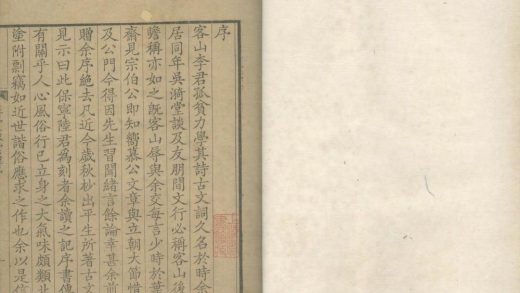 序
客山李君孤貧力學其詩古文詞久名於時余
居同年吳漪堂談及友朋間文行必稱客山後
瞻稱亦如之既客山辱與余交每言少時於葉
齋見宗伯公即知嚮慕公文章與立朝大節惜
及公門今得因先生習聞緒言餘論幸甚余前
贈余序絕去凡近今歲秋杪出平生所著古文
見示曰此保寧陸君為刻者余讀之記序書傳
有關乎人心風俗行已立身之大氣味頗類北
塗附剽竊如近世諧俗應求之作也余以是信